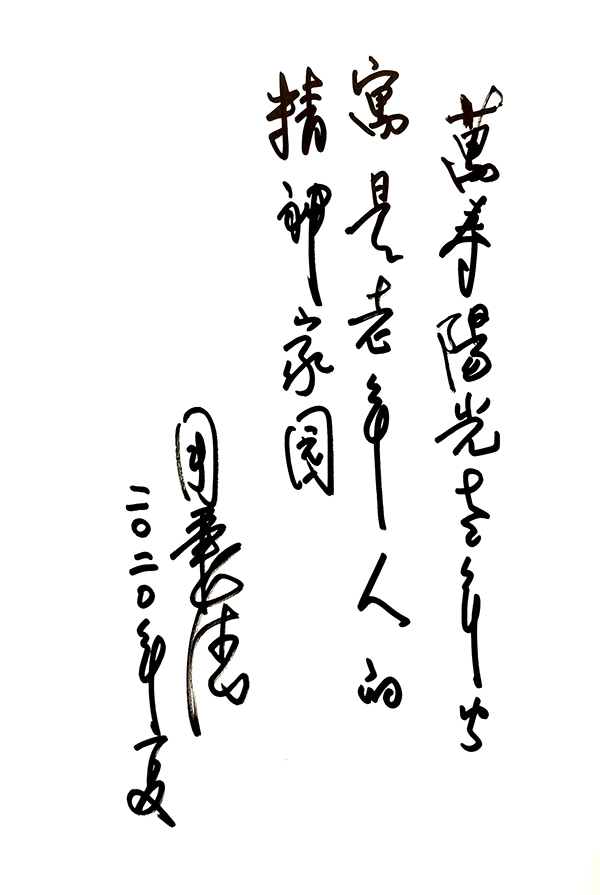 萬寿陽光老年公
寓是老年人的
精神家园
周秉德
二〇二〇年夏